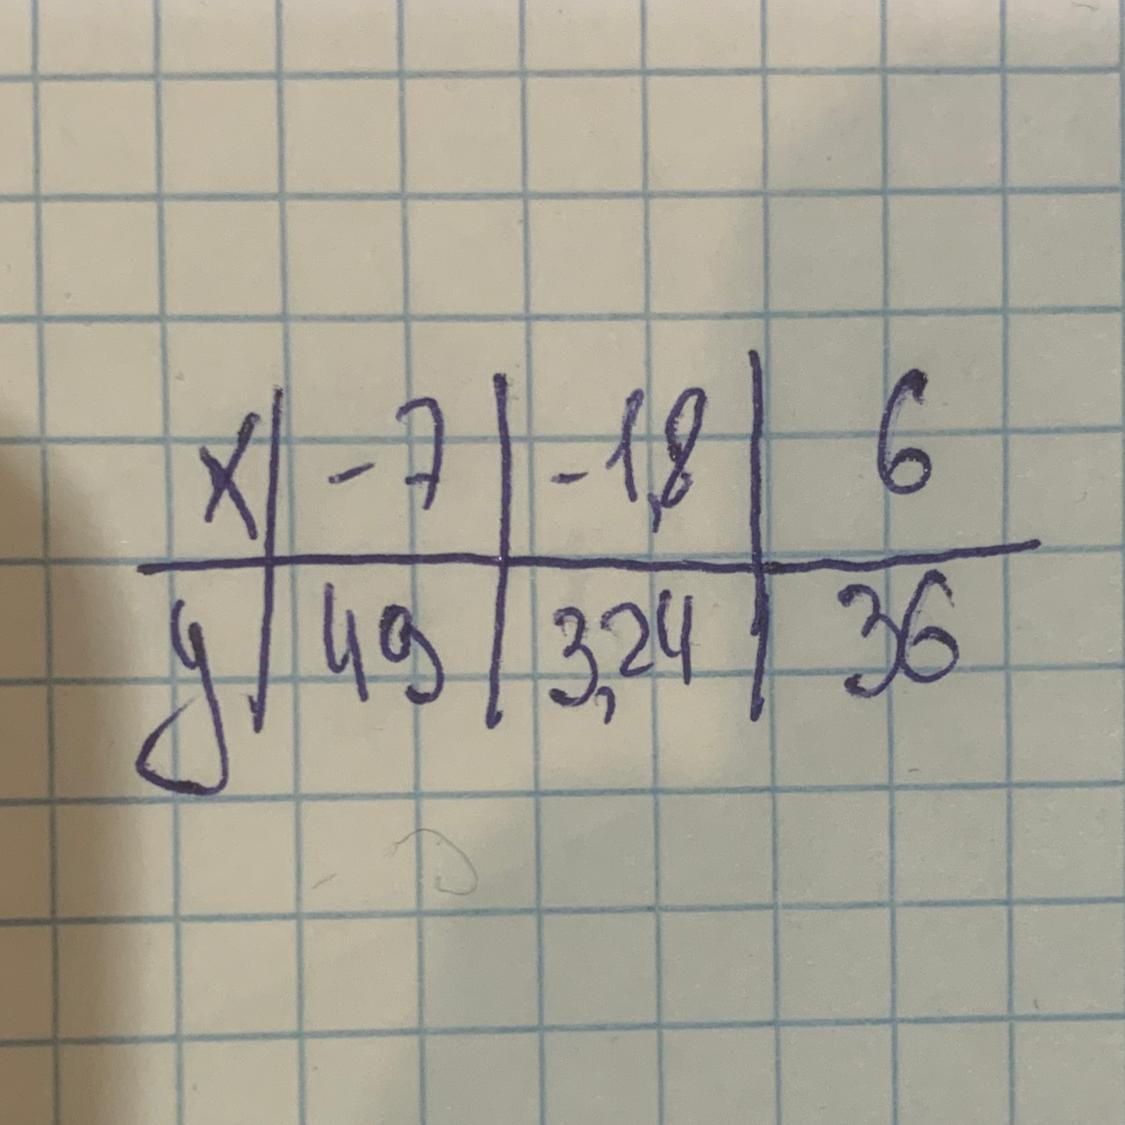 x -7 -1,8 6
y 49 3,24 36